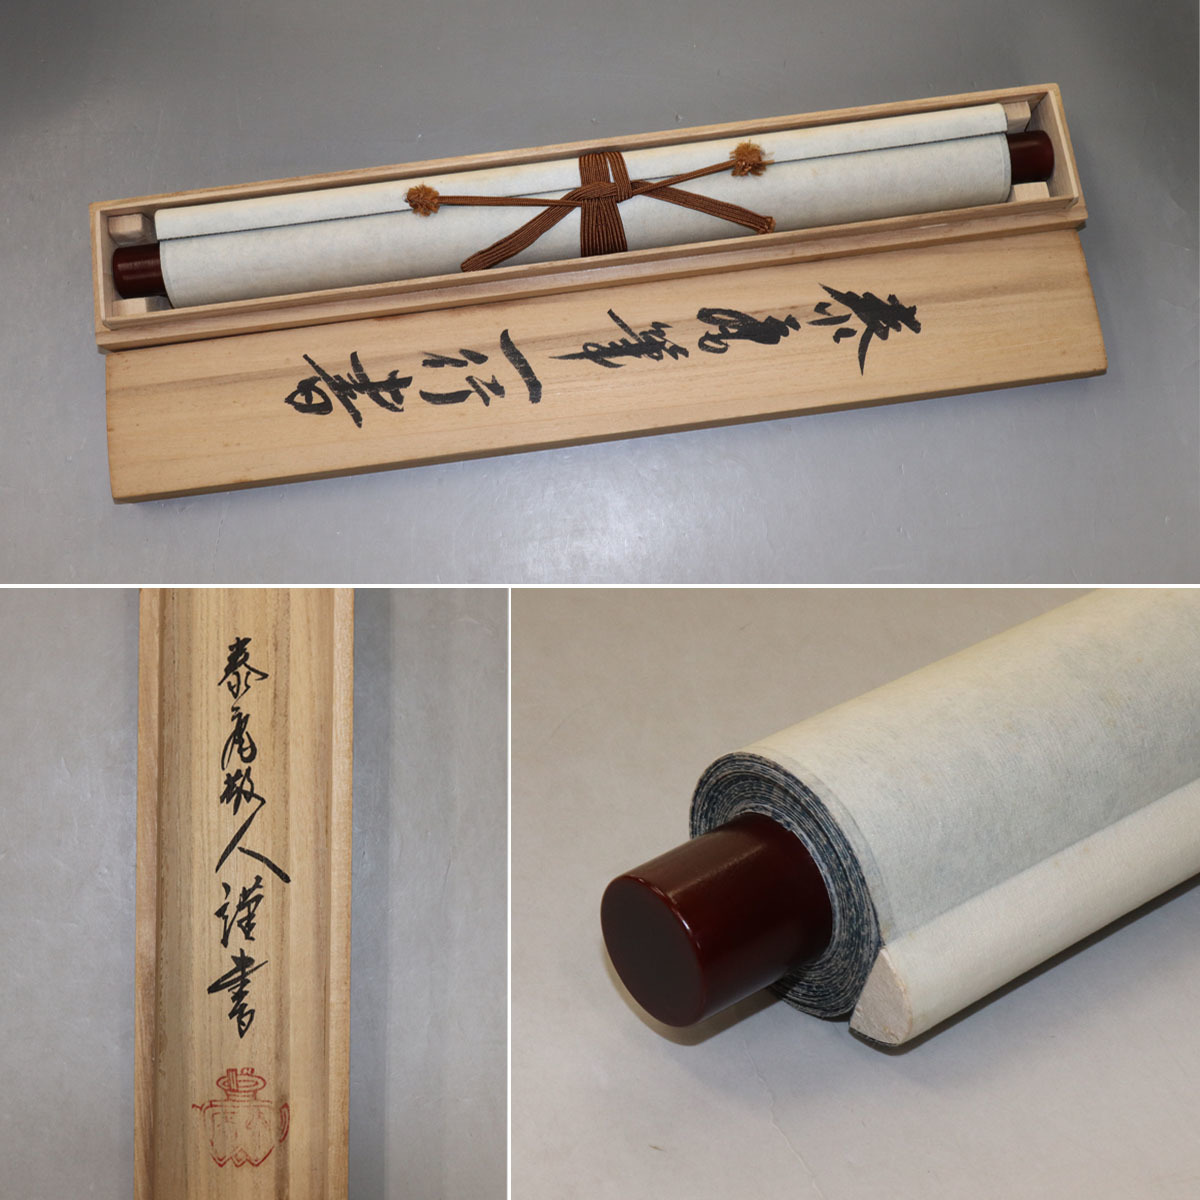 泰筆一行書
泰散人謹書